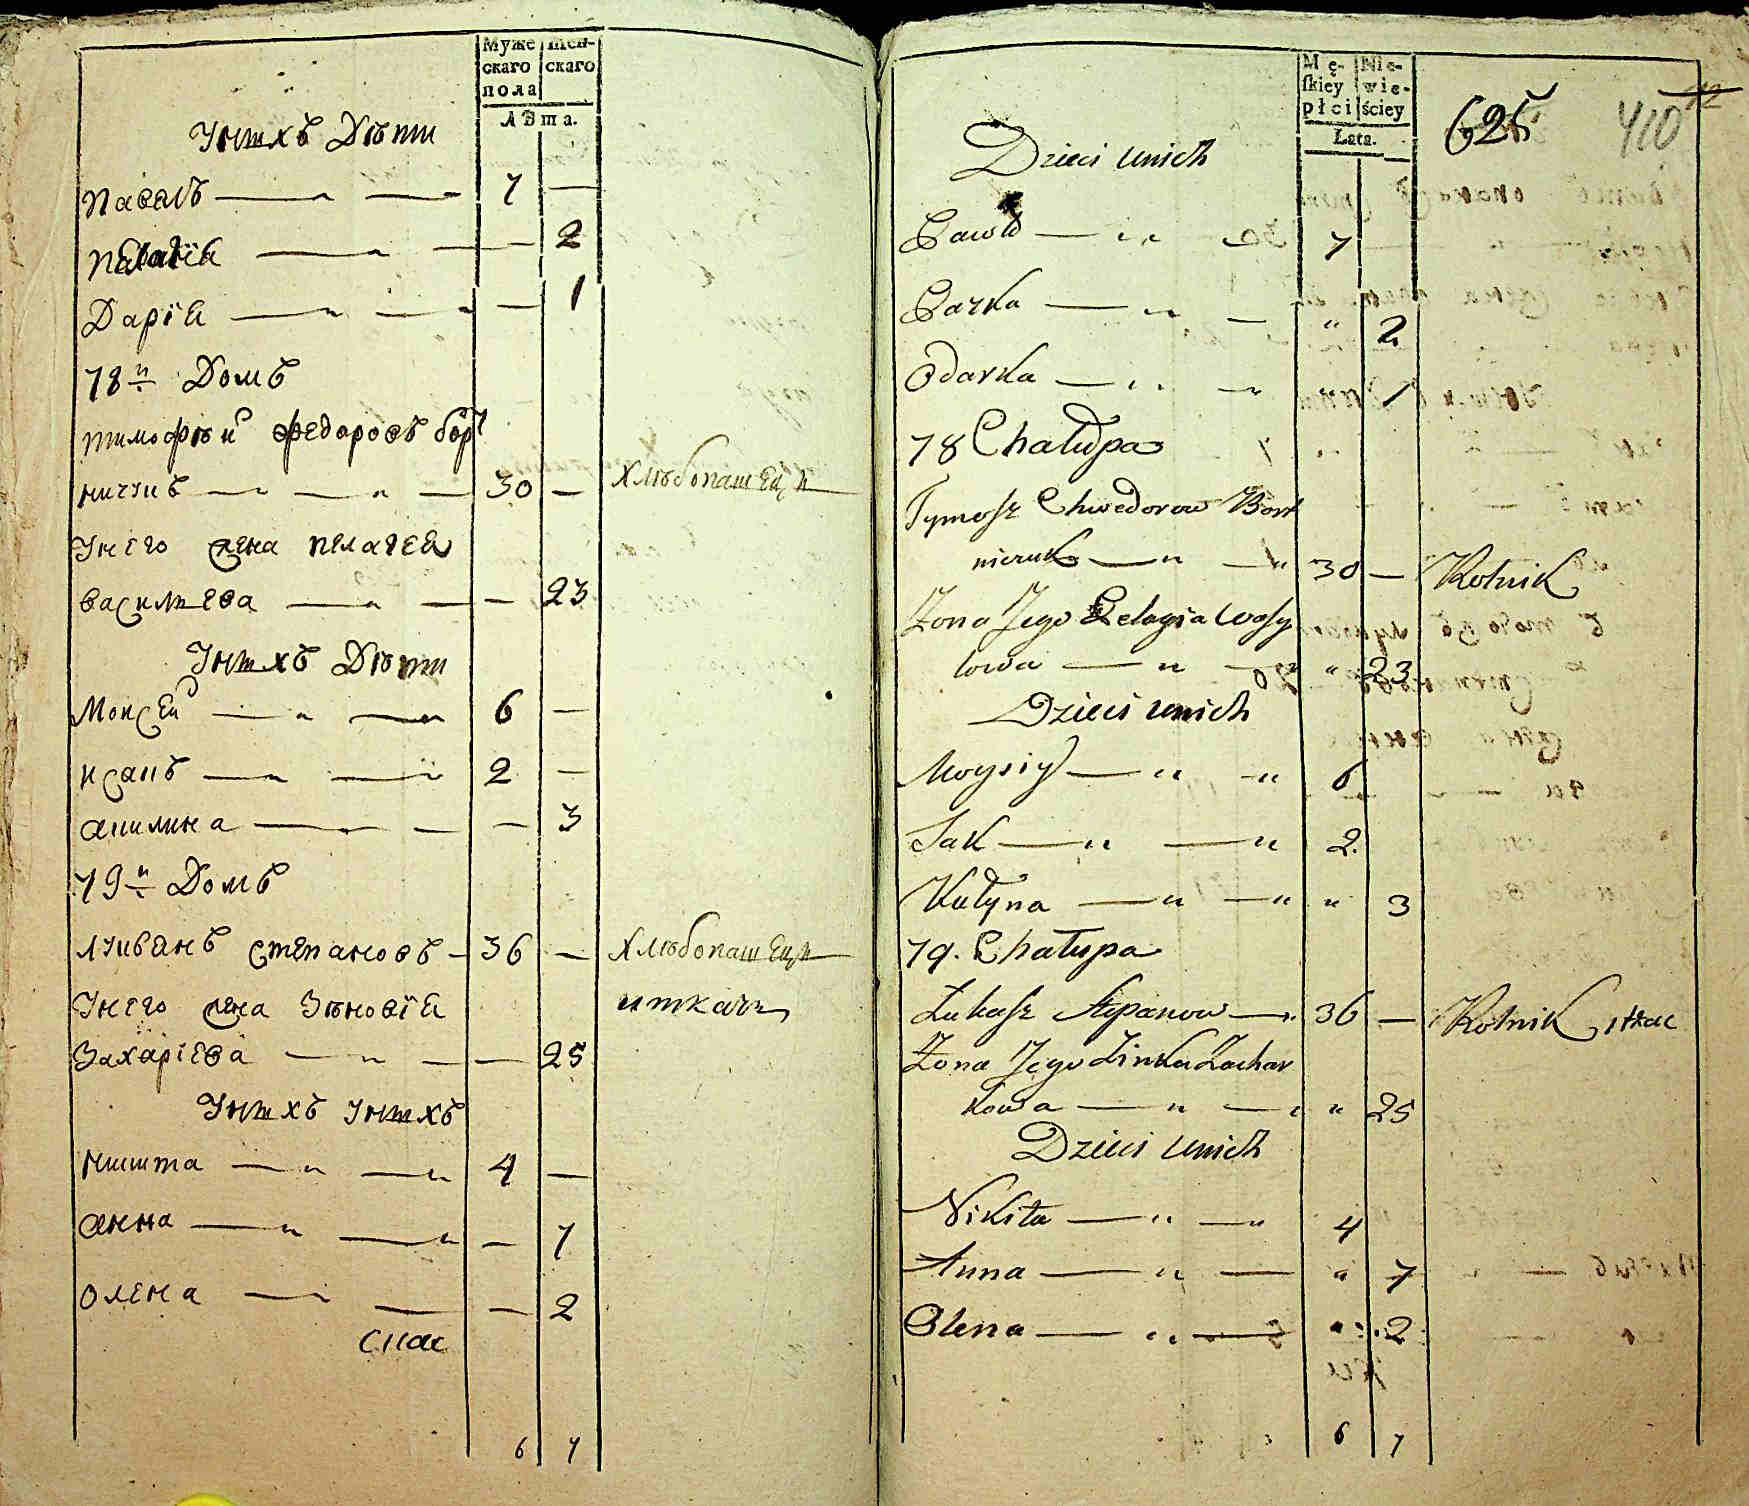 Муже
скаго
пола
Жен-
скаго
Лѣта.
Унихъ Дѣти
Павелъ 7 —
— 2
Дарїа — 1
78й Домъ
Тимофѣй Федоровъ борт
ничукъ 30 — Хлѣбопашецъ
Унего жена Пелагеа
василиева — 23
Унихъ Дѣти
Моисей 6 —
исакъ 2 —
акилина — 3
79й Домъ
лукианъ степановъ 36 — Хлѣбопашецъ
Унего жена Зѣновїа иткачъ
Захарїева — 25
Унихъ Унихъ
никита 4 —
анна — 7
олена — 2
6 7
Mę-
skiey
płci
Nie-
wie-
ściey
Lata.
625
410
12
Dzieci unich
Pawło 7
Parka " 2
Odarka " 1
78 Chałupa
Tymosz Chwedorow Bort
niczuk 30 — Rolnik
Żona Jego Pelagia Wasy
lowa " 23
Dzieci unich
Moysiy 6
Isak 2.
Kulyna " 3
79. Chałupa
Łukasz Stepanow 36 — Rolnik i tkac
Żona Jego Zinka Zachar
kowa " 25
Dzieci unich
Nikita 4
Anna " 7
Olena " 2
6 7